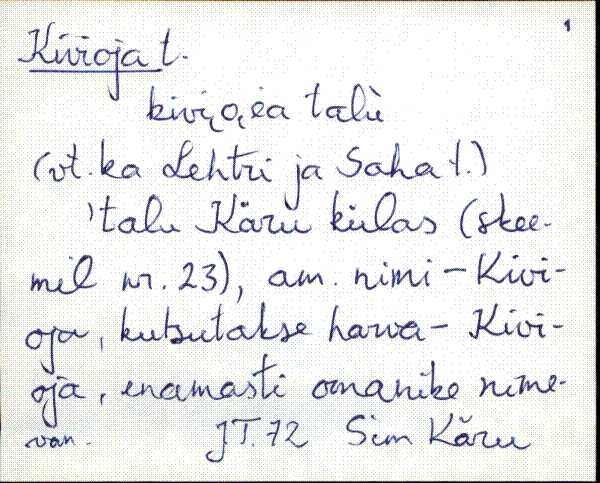 1
Kivioja t.
kivi̮o̮ėa talù
(vt. ka Lehtri ja Saha t.)
'talu Käru külas (skee-
mil nr. 23), am. nimi – Kivi-
oja, kutsutakse harva – Kivi-
oja, enamasti omanike nime-
van.
JT. 72 Sim Käru